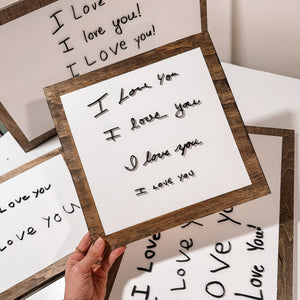 I Love
I love you!
I Love you!
I Love you
I love you
I love you
I love you
Love you
I Love you
I Love
I Love you
Love you
I love you!